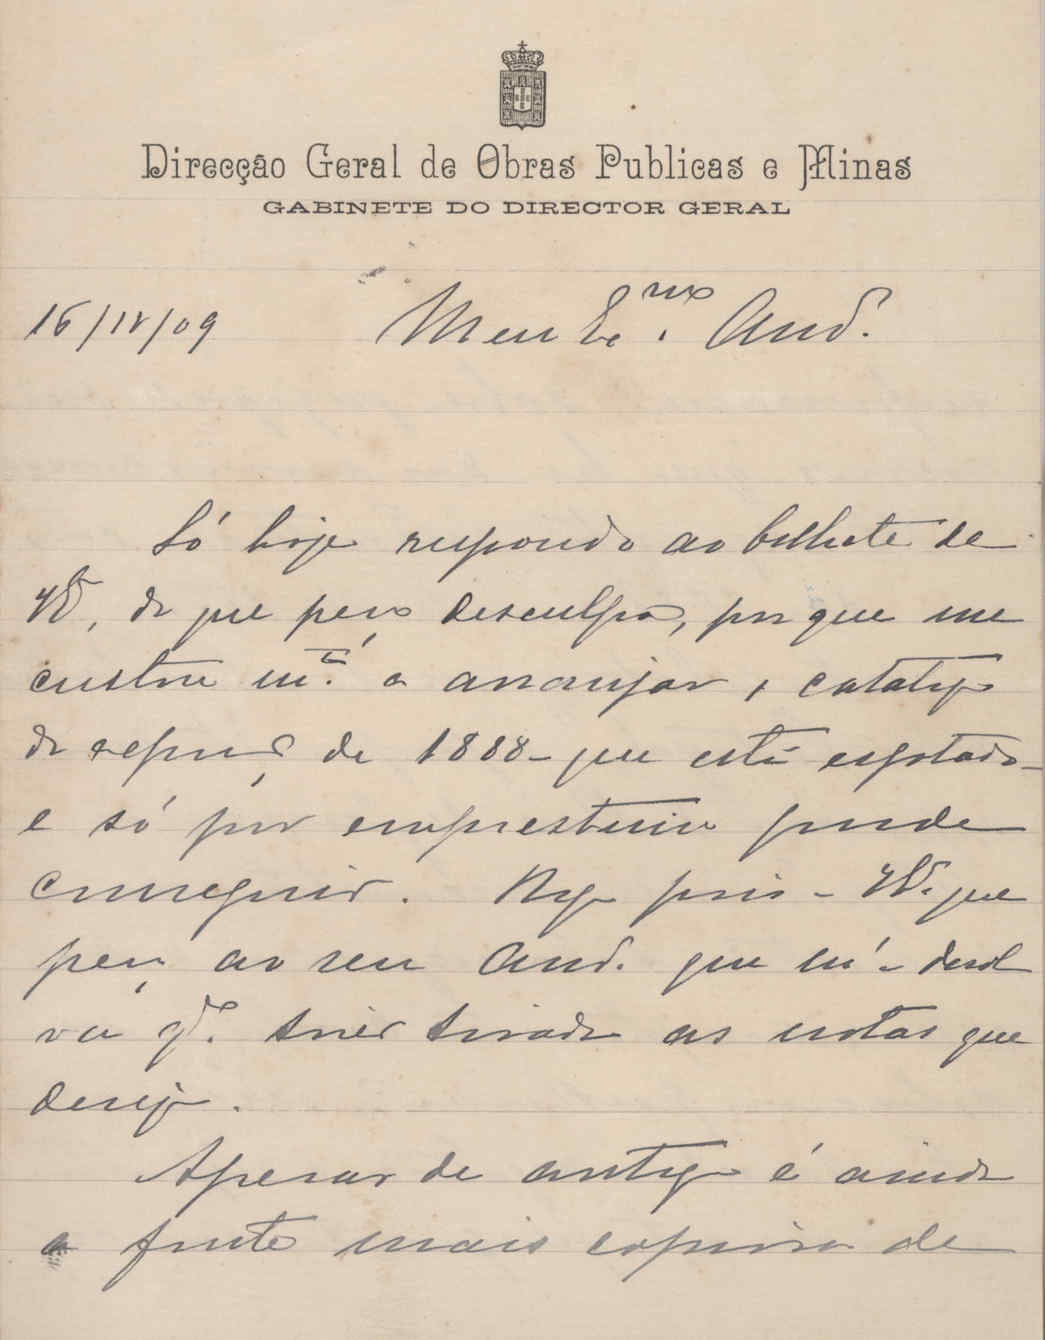 Direcção Geral de Obras Publicas e Minas
GABINETE DO DIRECTOR GERAL
16/12/09 Meu Ex.mo Am.o
Só hoje respondo ao bilhete de
V.E, do que peço desculpa, porque me
custou m.to a arranjar o catalogo
da expos.ão de 1888 - que está esgotado -
e só por emprestimo pude
conseguir. Rogo pois a V.E. que
peça ao seu Am.o que m'o devol
va q.do tiver tirado as notas que
deseja.
Apesar de antigo é ainda
a fonte mais copiosa de